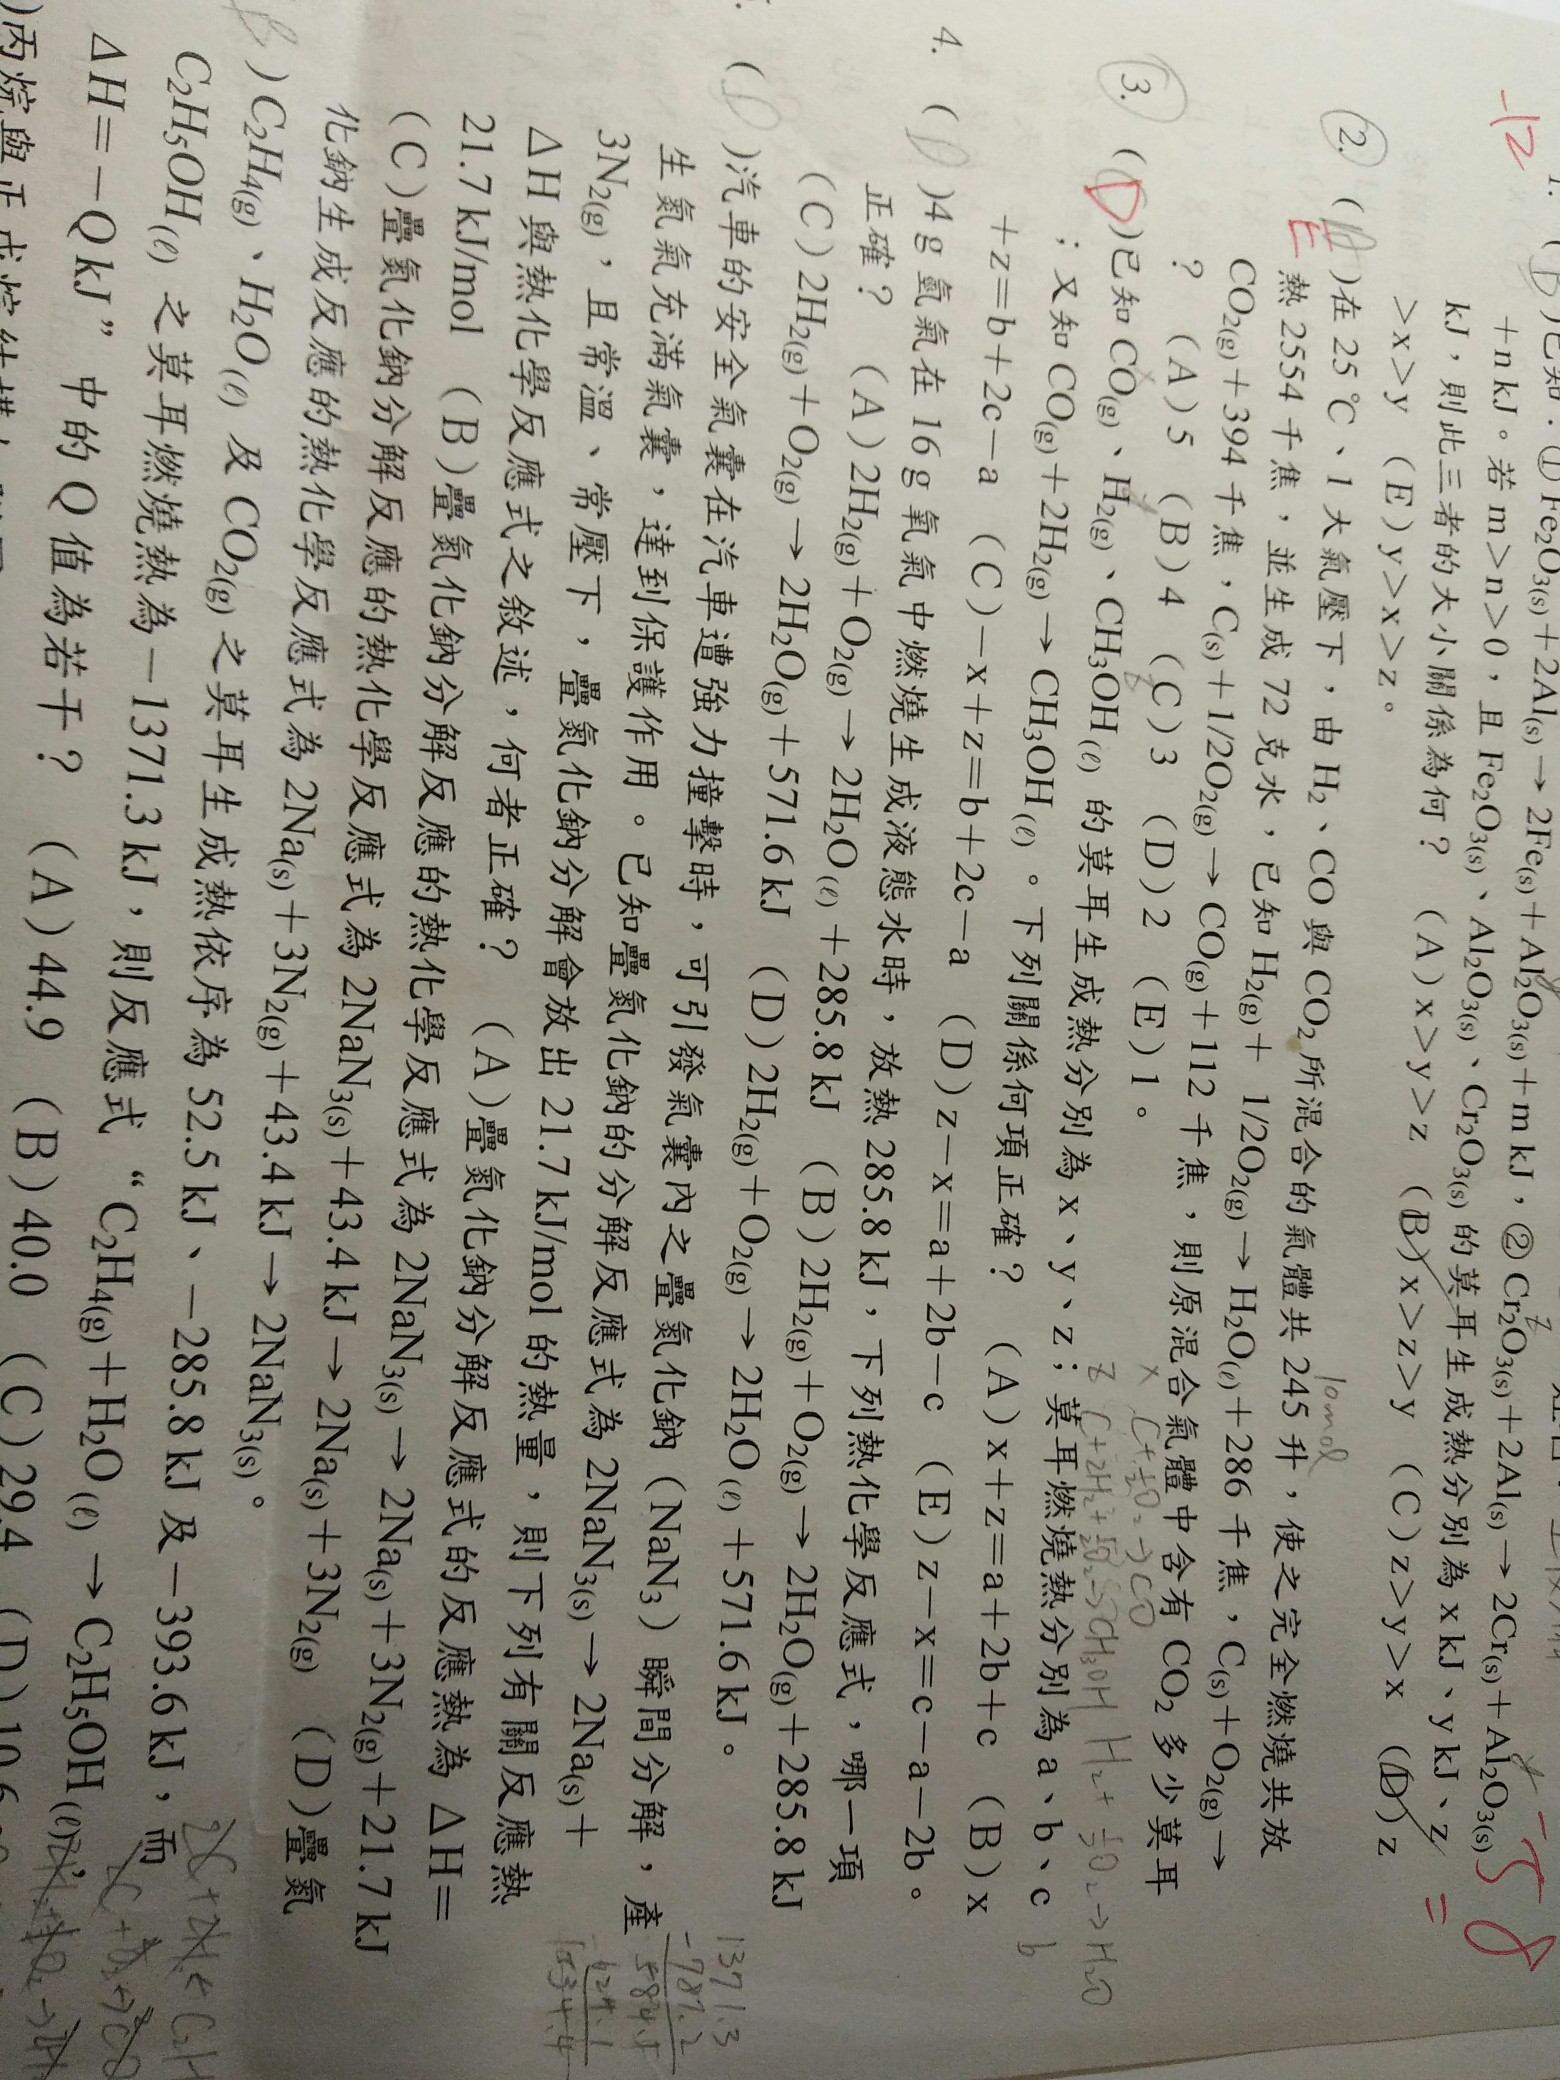 -12
1. (B)已知:①Fe₂O₃(s)+2Al(s)→2Fe(s)+Al₂O₃(s)+m kJ,②Cr₂O₃(s)+2Al(s)→2Cr(s)+Al₂O₃(s)
+n kJ。若 m>n>0,且 Fe₂O₃(s)、Al₂O₃(s)、Cr₂O₃(s) 的莫耳生成熱分別為 x kJ、y kJ、z
kJ,則此三者的大小關係為何? (A)x>y>z (B)x>z>y (C)z>y>x (D)z
>x>y (E)y>x>z。
10mol
2. ( )在 25 ℃、1 大氣壓下,由 H₂、CO 與 CO₂ 所混合的氣體共 245 升,使之完全燃燒共放
E
熱 2554 千焦,並生成 72 克水,已知 H₂(g)+ 1/2O₂(g)→H₂O(ℓ)+286 千焦,C(s)+O₂(g)→
CO₂(g)+394 千焦,C(s)+1/2O₂(g)→CO(g)+112 千焦,則原混合氣體中含有 CO₂ 多少莫耳
? (A)5 (B)4 (C)3 (D)2 (E)1。
x C+½O₂→CO
3. (D)已知 CO(g)、H₂(g)、CH₃OH(ℓ) 的莫耳生成熱分別為 x、y、z;莫耳燃燒熱分別為 a、b、c
z C+2H₂+½O₂→CH₃OH H₂+½O₂→H₂O
;又知 CO(g)+2H₂(g)→CH₃OH(ℓ)。下列關係何項正確? (A)x+z=a+2b+c (B)x
+z=b+2c-a (C)-x+z=b+2c-a (D)z-x=a+2b-c (E)z-x=c-a-2b。
4. (D)4 g 氫氣在 16 g 氧氣中燃燒生成液態水時,放熱 285.8 kJ,下列熱化學反應式,哪一項
正確? (A)2H₂(g)+O₂(g)→2H₂O(ℓ)+285.8 kJ (B)2H₂(g)+O₂(g)→2H₂O(g)+285.8 kJ
(C)2H₂(g)+O₂(g)→2H₂O(g)+571.6 kJ (D)2H₂(g)+O₂(g)→2H₂O(ℓ)+571.6 kJ。
(D)汽車的安全氣囊在汽車遭強力撞擊時,可引發氣囊內之疊氮化鈉(NaN₃)瞬間分解,產
生氮氣充滿氣囊,達到保護作用。已知疊氮化鈉的分解反應式為 2NaN₃(s)→2Na(s)+
3N₂(g),且常溫、常壓下,疊氮化鈉分解會放出 21.7 kJ/mol 的熱量,則下列有關反應熱
ΔH 與熱化學反應式之敘述,何者正確? (A)疊氮化鈉分解反應式的反應熱為 ΔH=
21.7 kJ/mol (B)疊氮化鈉分解反應的熱化學反應式為 2NaN₃(s)→2Na(s)+3N₂(g)+21.7 kJ
(C)疊氮化鈉分解反應的熱化學反應式為 2NaN₃(s)+43.4 kJ→2Na(s)+3N₂(g) (D)疊氮
化鈉生成反應的熱化學反應式為 2Na(s)+3N₂(g)+43.4 kJ→2NaN₃(s)。
1371.3
-787.2
584.1
(B)C₂H₄(g)、H₂O(ℓ) 及 CO₂(g) 之莫耳生成熱依序為 52.5 kJ、-285.8 kJ 及 -393.6 kJ,而
C₂H₅OH(ℓ) 之莫耳燃燒熱為 -1371.3 kJ,則反應式“C₂H₄(g)+H₂O(ℓ)→C₂H₅OH(ℓ),
ΔH=-Q kJ”中的 Q 值為若干? (A)44.9 (B)40.0 (C)29.4 (D)10.6